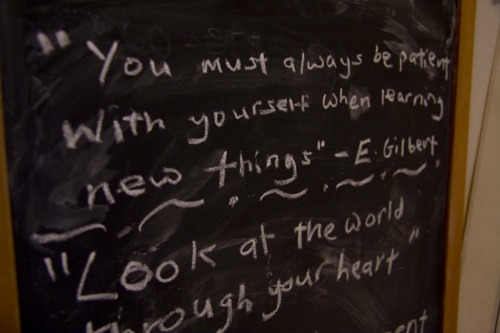 "You must always be patient
With yourself when learning
new things" - E. Gilbert
"Look at the world
through your heart"